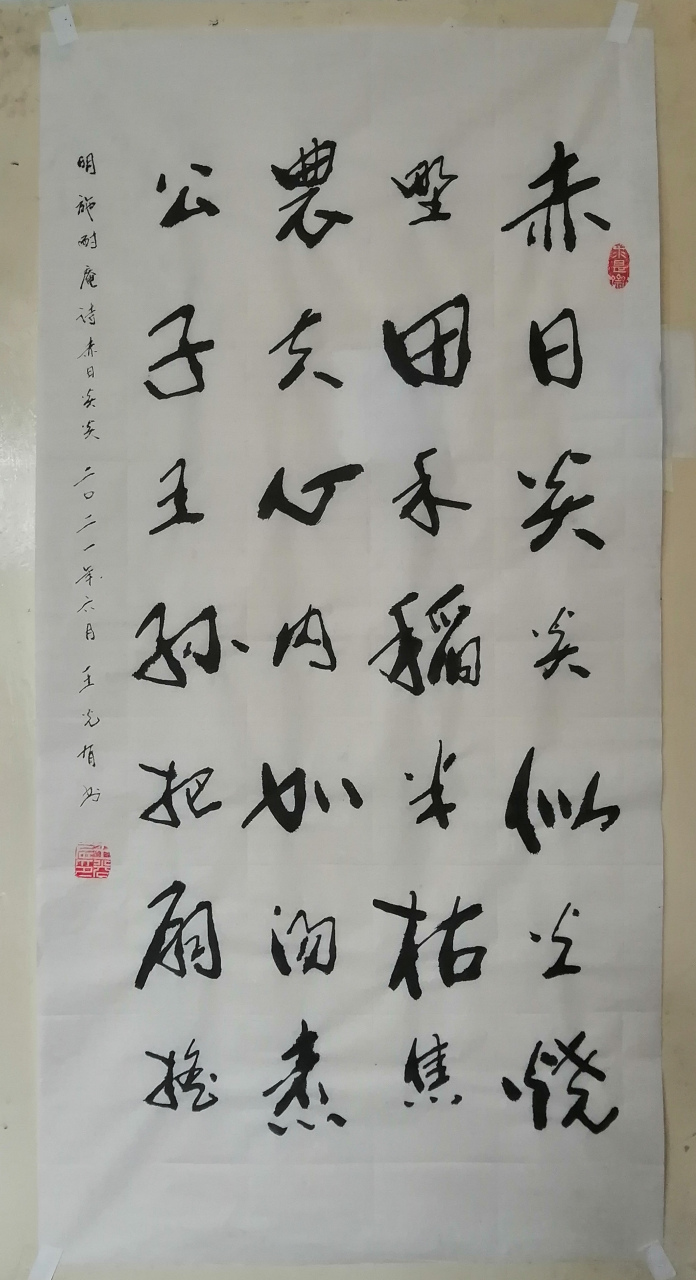 赤日炎炎似火烧
野田禾稻半枯焦
農夫心内如湯煮
公子王孫把扇摇
明施耐庵诗赤日炎炎 二〇二一年六月 王光书